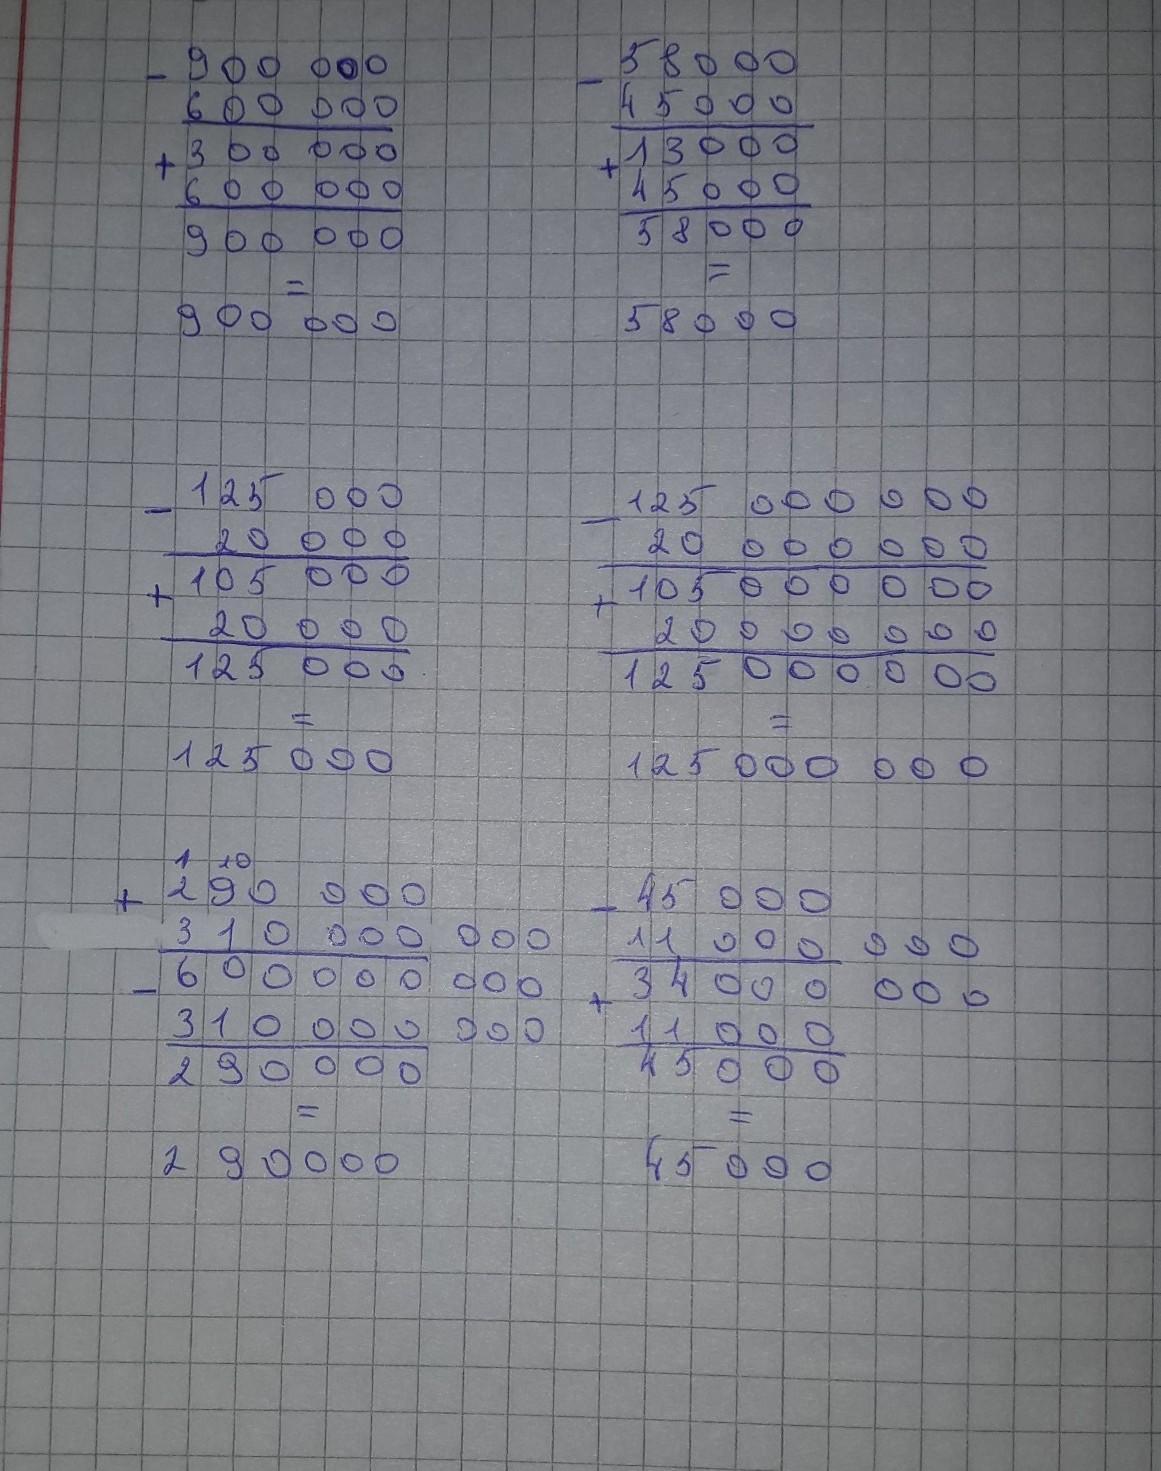 - 900 000
600 000
+ 300 000
600 000
900 000
=
900 000
- 58000
45000
+ 13000
45000
58000
=
58000
- 125 000
20 000
+ 105 000
20 000
125 000
=
125 000
- 125 000 000
20 000 000
+ 105 000 000
20 000 000
125 000 000
=
125 000 000
1 10
+ 290 000
310 000 000
- 600 000 000
310 000 000
290 000
=
290000
- 45 000
11 000 000
+ 34 000 000
11 000
45 000
=
45 000